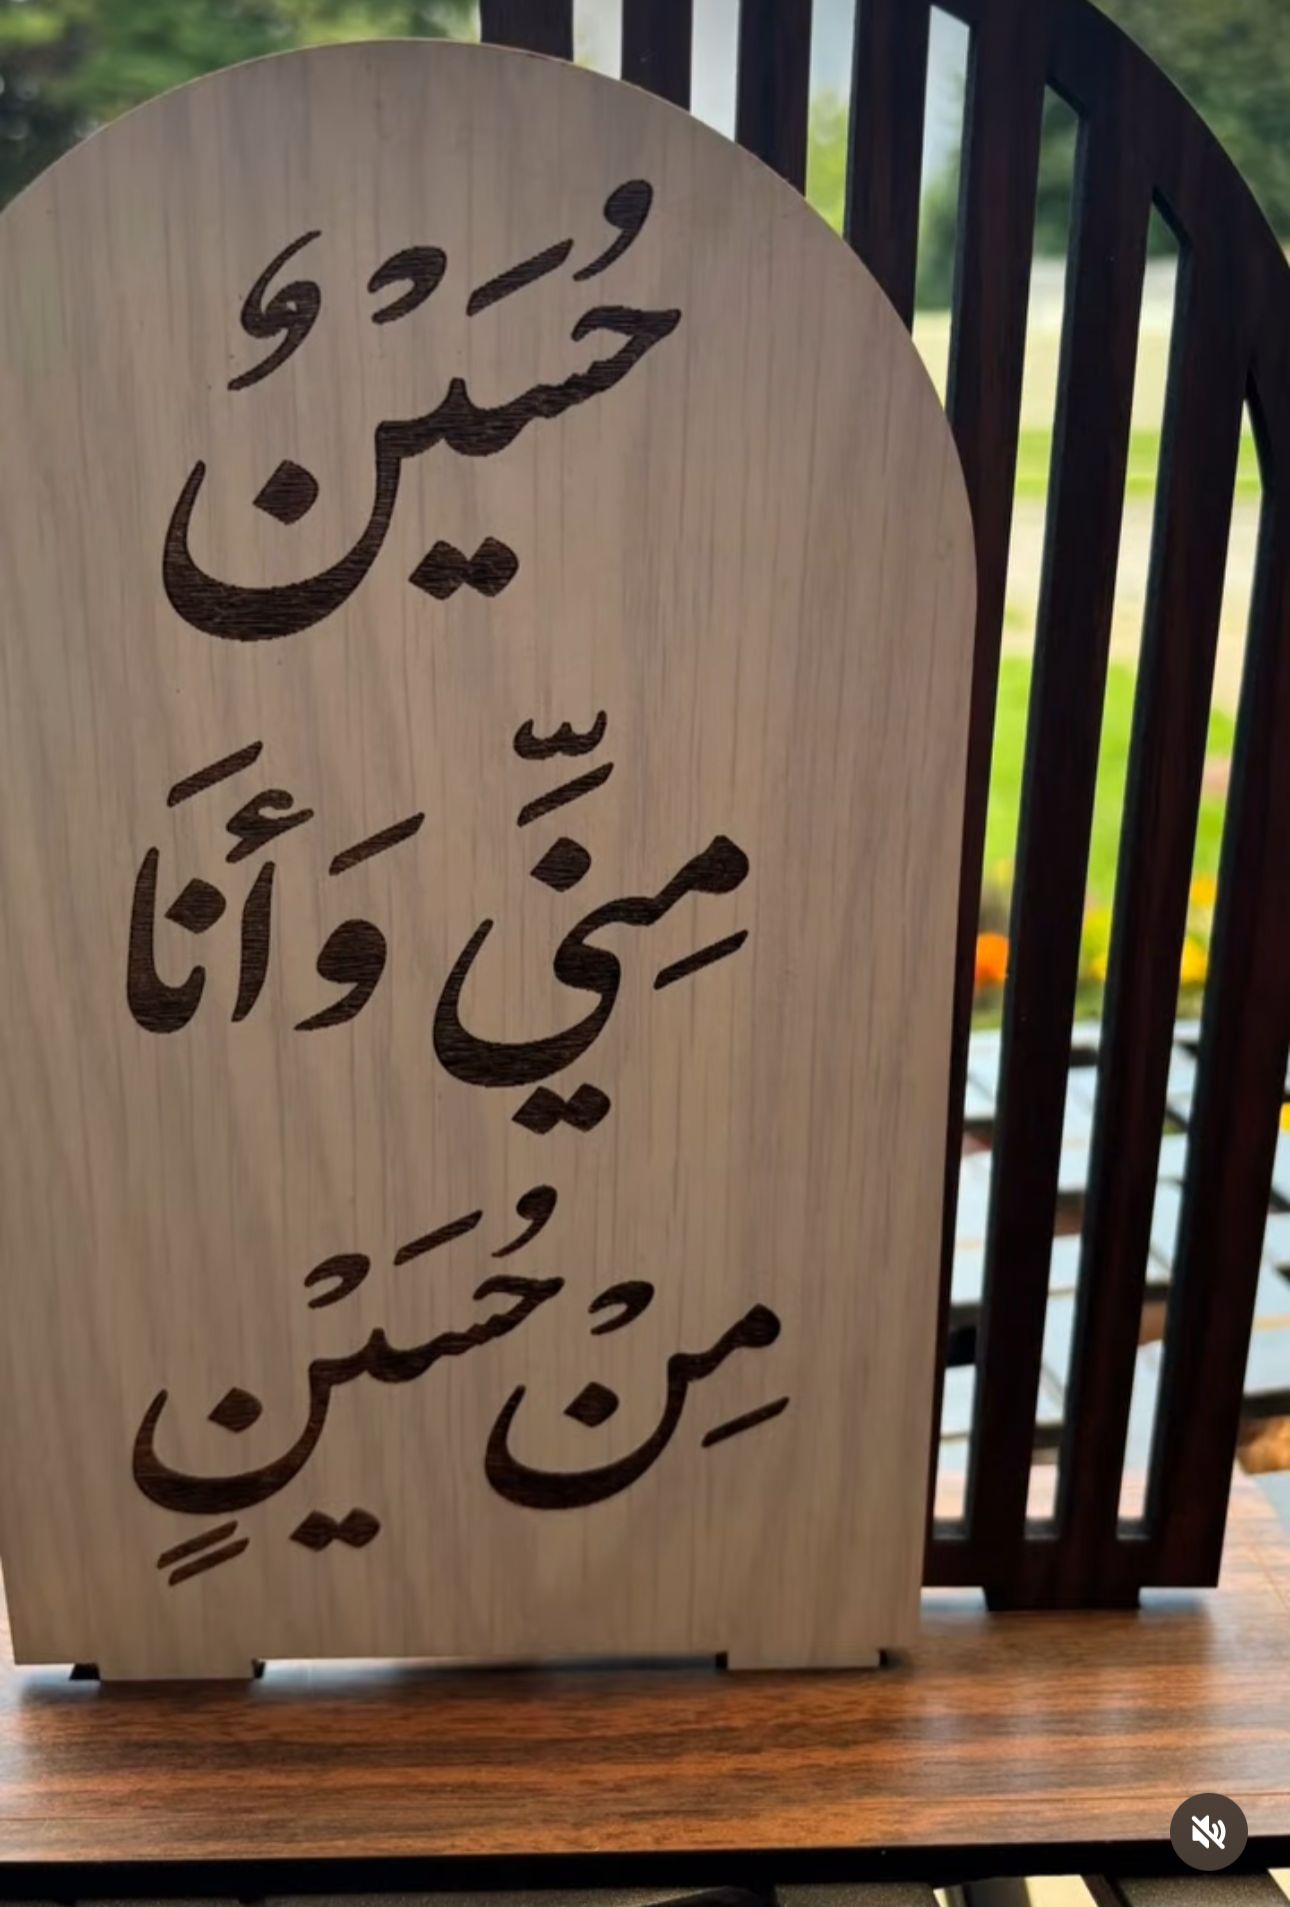 حُسَيْنٌ
مِنِّي وَأَنَا
مِنْ حُسَيْنٍ